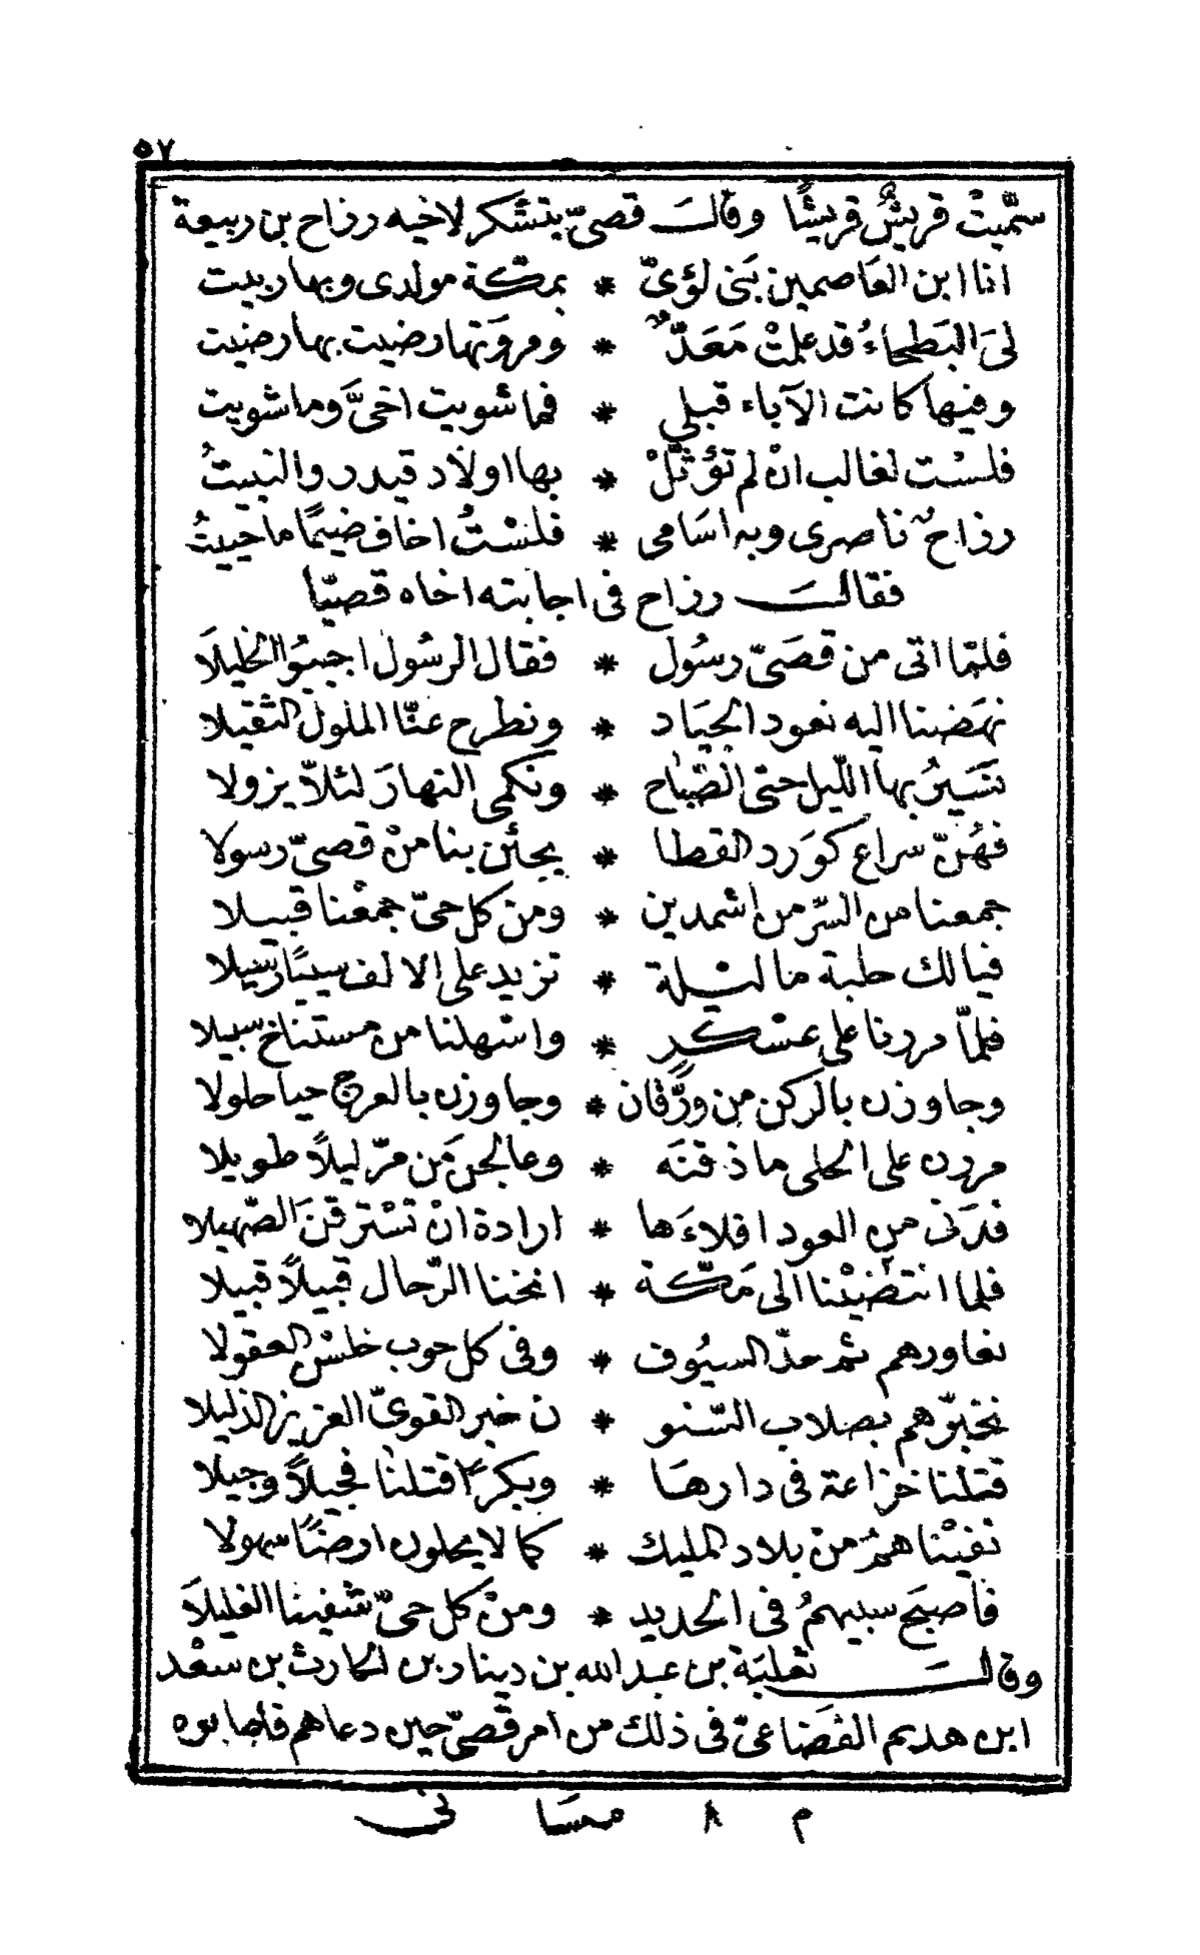 ٥٧
سمّيتْ قريشٌ قريشًا وقالَ قصىّ يتشكر لاخيه رزاح بن ربيعة
انا ابن العَاصمين بَنى لؤىّ * بمكّة مولدى وبها ربيت
لىَ البَطحاءُ قد علمتْ مَعَدٌّ * ومروَتها رضيت بها رضيت
وفيها كانت الآباء قبلي * فما شويت اخىَّ وما شويت
فلسْت لغالب انْ لم تؤثّلْ * بها اولاد قيدر والنبيتُ
رزاحٌ ناصرى وبه اسَامى * فلسْتُ اخاف ضيمًا ما حييتُ
فقالَ رزاح فى اجابته اخاه قصيّا
فلمّا اتى من قصَىّ رسُول * فقال الرسُول اجيبُوا الخليلَا
نهَضنا اليه نعود الجيَاد * ونطرح عنّا الملول الثقيلا
نَسَيرُ بها اللّيل حتى الصّبَاح * ونكمى النهارَ لئلاّ يزولا
فهُنّ سراع كوَرد القطا * يجئن بنا منْ قصىّ رسولا
جمعنا من السّر من اشمدين * ومن كل حىّ جمعْنا قبيلا
فيالك حلبة ما ليْلة * تزيد على الالف سيبًا رسيلا
فلمّا مررنا على عسْكر * واسْهلنا من مستناخ سبيلا
وجاوزن بالركن من ورْقان * وجاوزن بالعرج حيا حلولا
مررن على الحلى ما ذقنَه * وعالجن من مرّ ليلًا طويلا
فدَنى من العود افلاءَها * ارادة انْ تسْترقنَ الصّهيلا
فلما انتضيْنا الى مَكّة * انخنا الرّحال قبيلًا قبيلا
نعاورهم ثم حدّ السيُوف * وفى كل حوب خلسْ العقولا
نخبزّهم بصلاب النّسو * ن خبر القوىّ العزيز الذليلا
قتلنا خزاعة فى دارهَا * وبكرًا قتلنا فجيلًا وجيلا
نفيْنا همُ منْ بلاد المليك * كما لا يحلون ارضًا سهولا
فاصبَح سبيهمُ فى الحديد * ومنْ كل حىّ شفينا الغليلَا
وقالَ ثعلبَة بن عبد الله بن دينار بن الحارث بن سعْد
ابن هديم القضَاعىّ فى ذلك من امر قصىّ حين دعاهم فاجابوه
م ٨